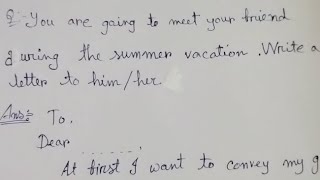 Q:- You are going to meet your friend
during the summer vacation. Write a
letter to him/her.
Ans:- To.
Dear ........,
At first I want to convey my g